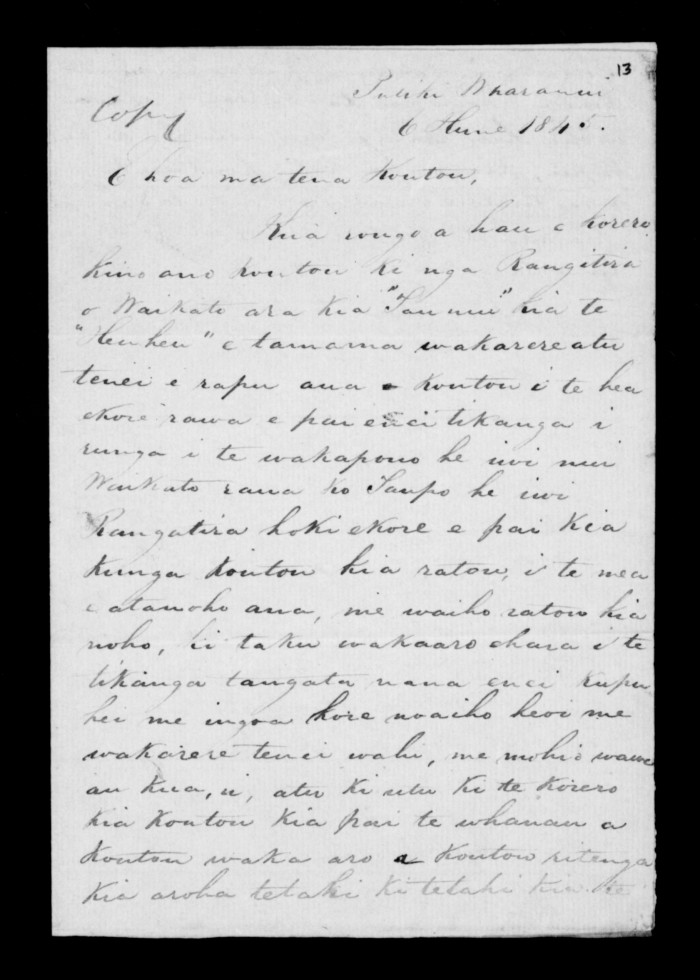 13
Wharanui
Copy
6 Hune 1845.
E hoa ma tena koutou,
Kua rongo a hau e korero
kino ano koutou ki nga Rangitira
o Waikato ara kia "Taumu" kia te
"Heuheu" e tamama wakarere atu
tenei e rapu ana koutou i te hea
ekore rawa e pai enei tikanga i
runga i te wakapono he iwi nui
Waikato raua ko Taupo he iwi
Rangatira hoki ekore e pai kia
kunga koutou kia ratou, i te mea
e atanoho ana, me waiho ratou kia
noho, ki taku wakaaro ehara i te
tikanga tangata nana enei kupu
hei me ingoa kore noaiho heoi me
wakarere tenei wahi, me mohio wawe
au kua, u, atu ki utu ki te korero
kia koutou kia pai te whanau a
koutou waka aro a koutou ritenga
kia aroha tetahi ki tetahi kia te